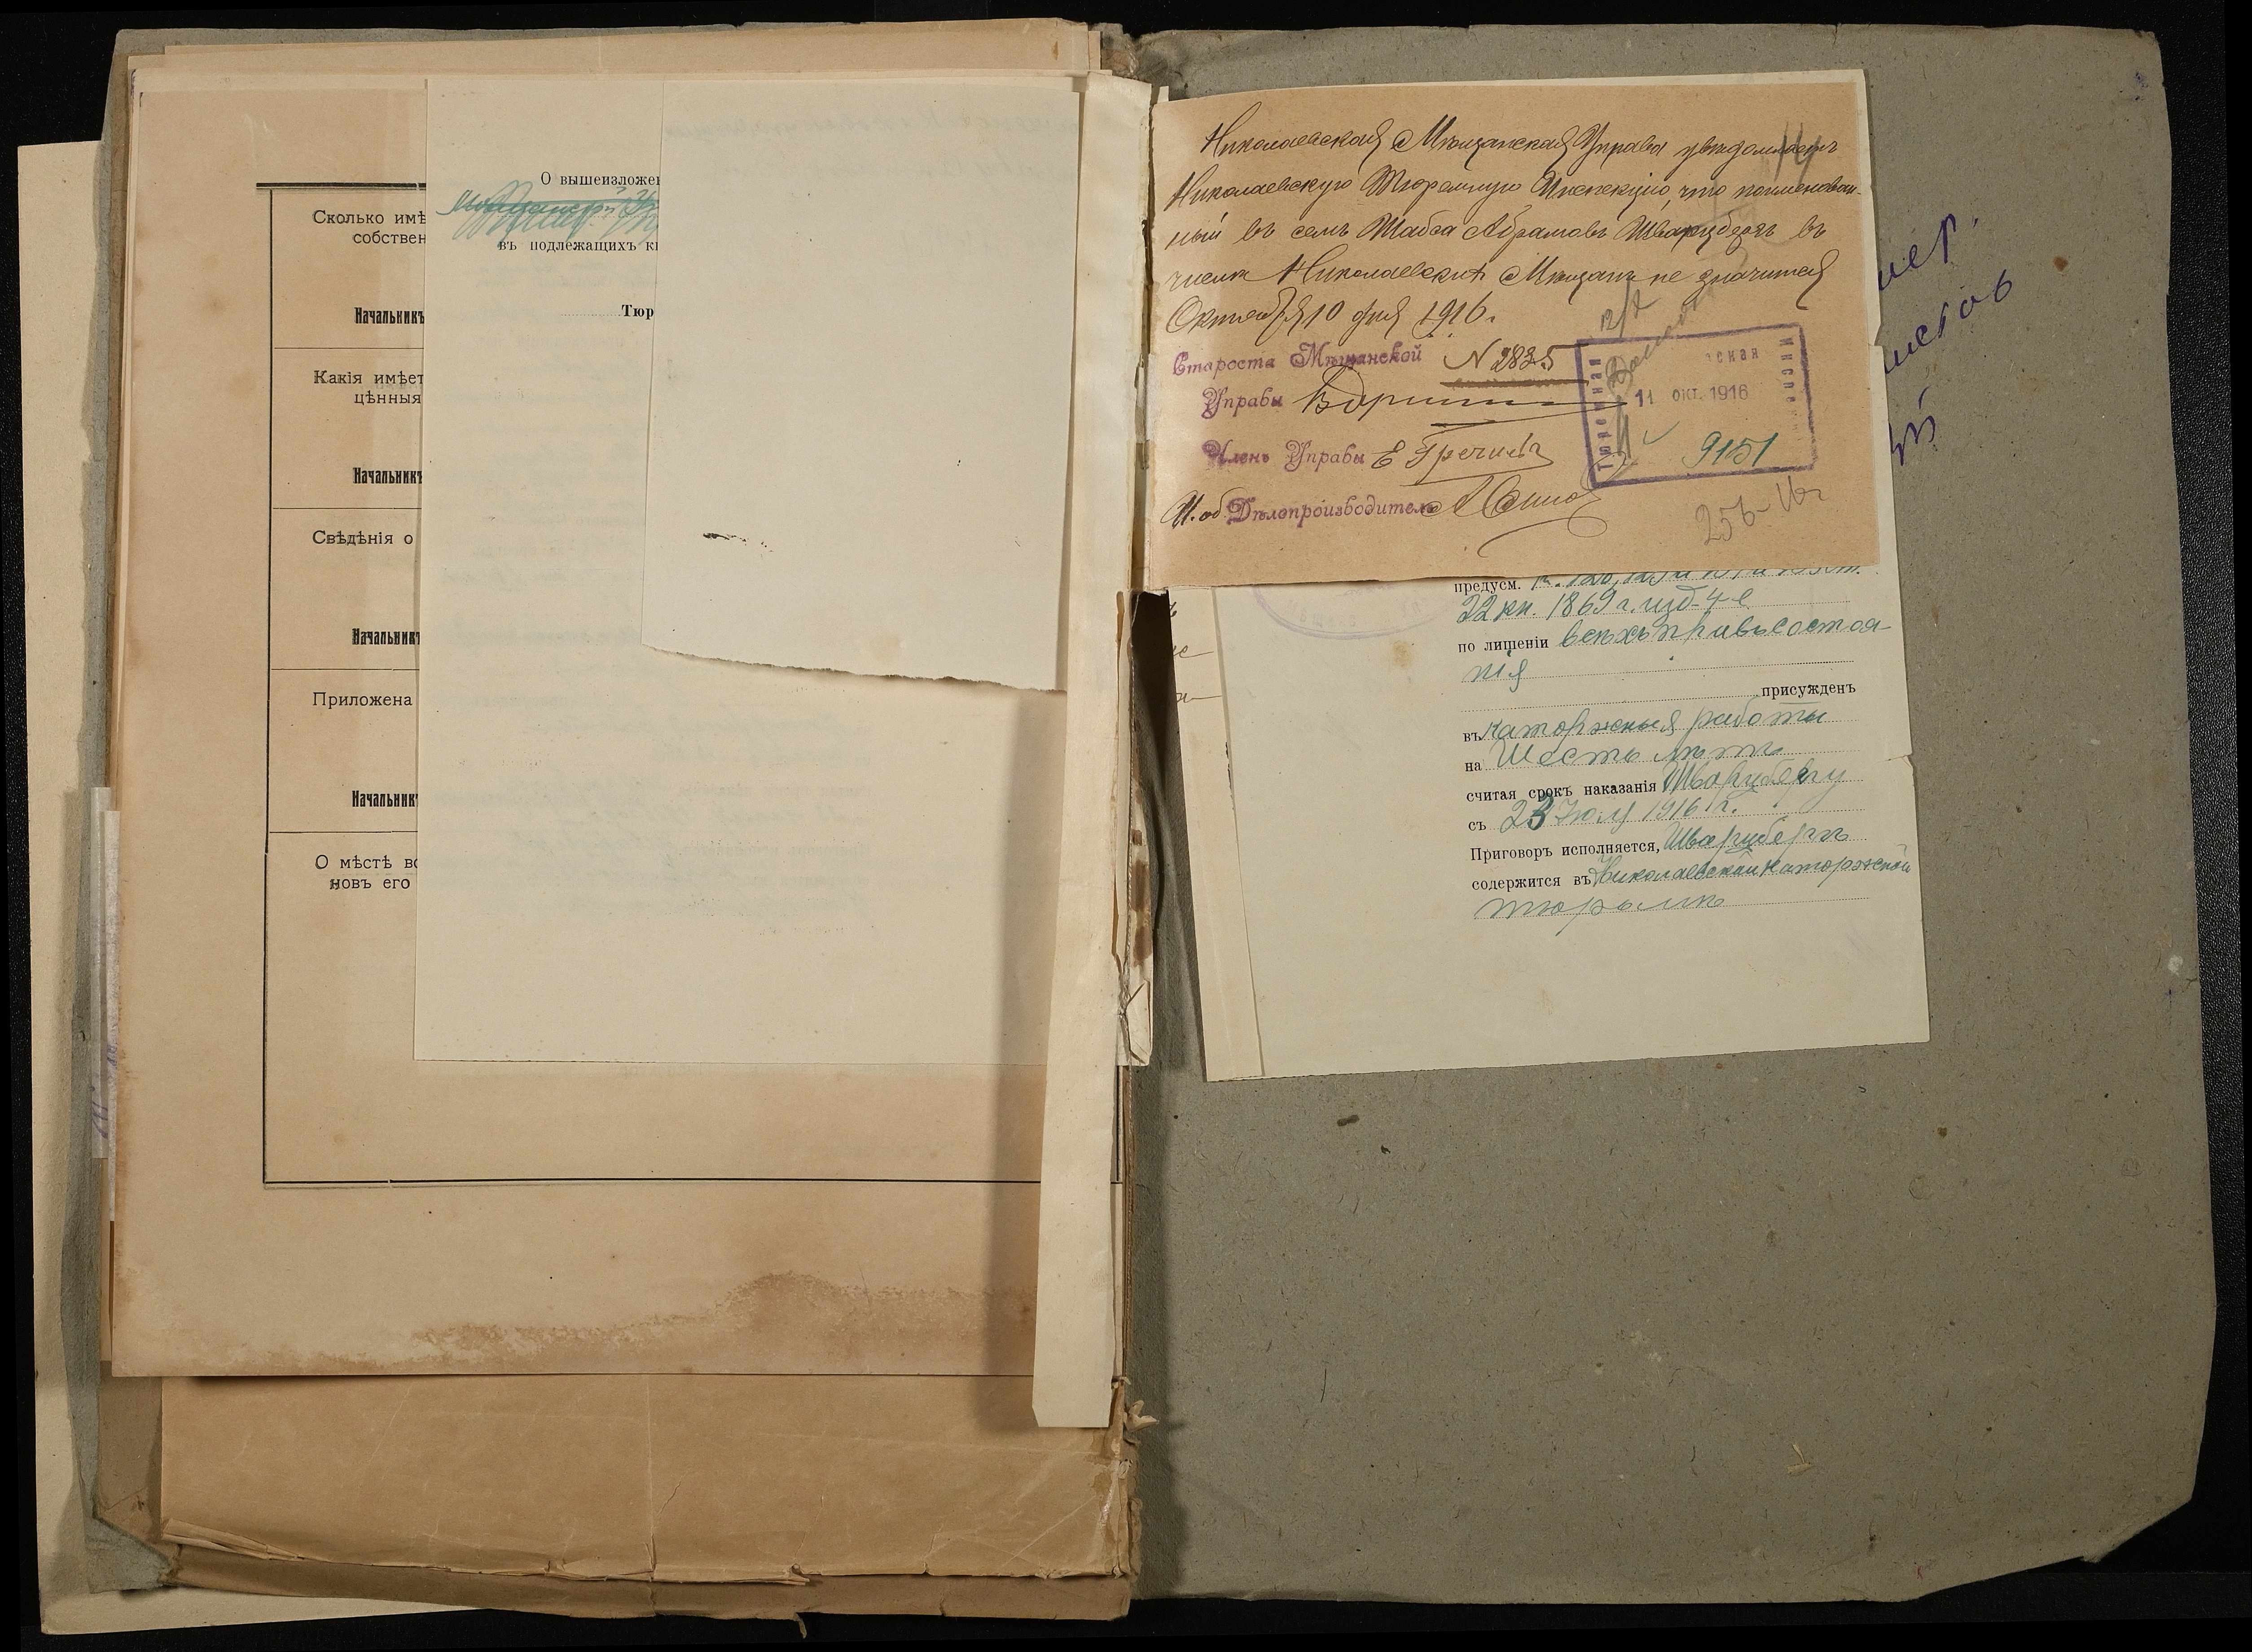 Сколько имѣ
собствен
Начальникъ
Какія имѣет
цѣнныя
Начальникъ
Свѣдѣнія о
Начальникъ
Приложена
Начальникъ
О мѣстѣ во
новъ его
О вышеизложен
въ подлежащихъ к
Тюр
14
Николаевская Мѣщанская Управа увѣдомляетъ
Николаевскую Тюремную Инспекцію, что поименован-
ный въ семъ Шабса Абрамовъ Шварцбергъ въ
числѣ Николаевскихъ Мѣщанъ не значится
Октября 10 дня 1916.
Староста Мѣщанской N 2825
Управы
Членъ Управы Е Гречинъ
И. об. Дѣлопроизводитель
Тюремная
ская
Инспекція
11 ОКТ. 1916
9151
256-16
предусм.
22 кн. 1869 г. изд. 4-е
по лишеніи всѣхъ правъ состоя-
нія
присужденъ
въ каторжныя работы
на Шесть лѣтъ
считая срокъ наказанія Шварцбергу
съ 23 Юля 1916 г.
Приговоръ исполняется, Шварцбергъ
содержится въ Николаевской каторжной
тюрьмѣ